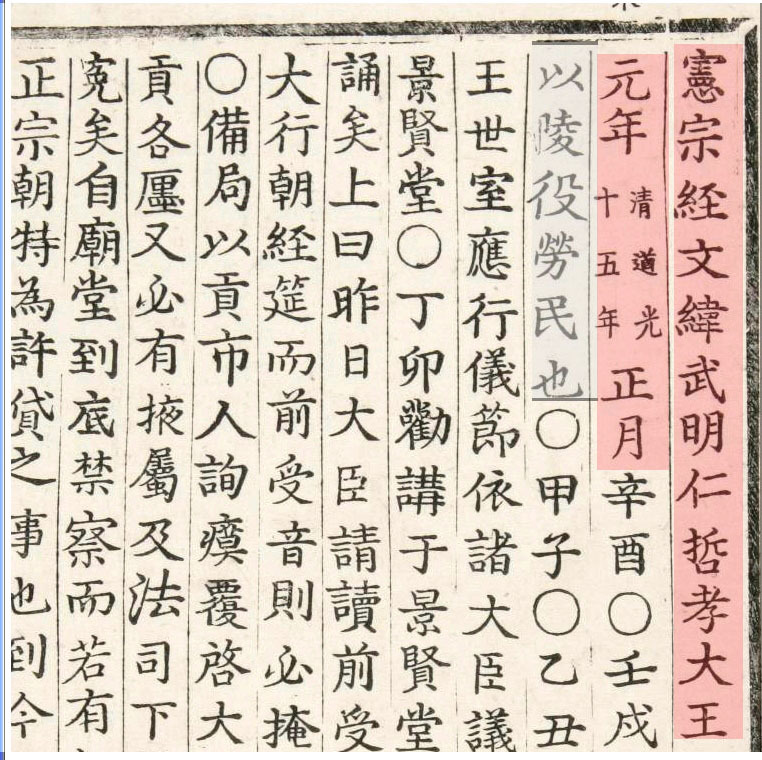 憲宗経文緯武明仁哲孝大王
元年清道光十五年正月辛酉○壬戌
以陵役勞民也○甲子○乙丑
王世室應行儀節依諸大臣議
景賢堂○丁卯勸講于景賢堂
誦矣上曰昨日大臣請讀前受
大行朝経筵而前受音則必掩
○備局以貢市人詢瘼覆啓大
貢各廛又必有掖屬及法司下
寃矣自廟堂到底禁察而若有
正宗朝特為許貸之事也到今